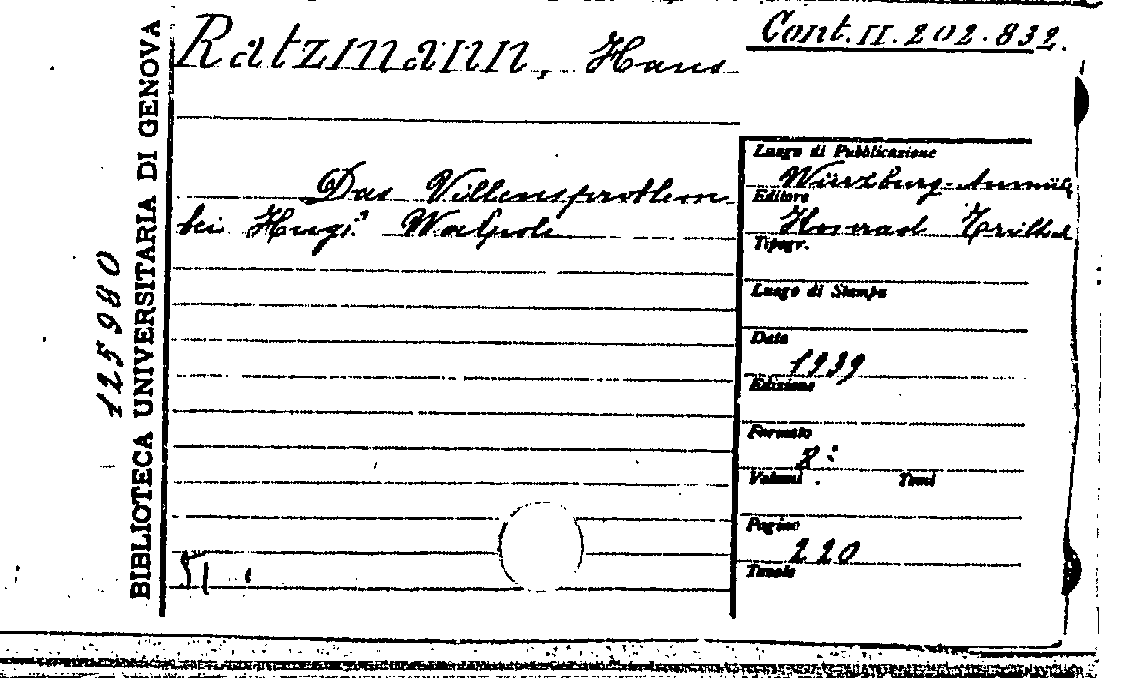 Ratzmann, Hans
Cont. II. 202.832.
BIBLIOTECA UNIVERSITARIA DI GENOVA
125980
Das Villensproblem
bei Hugi? Walpole
Luogo di Pubblicazione
Würzburg-Aumühle
Editore
Konrad Triltsch
Tipogr.
Luogo di Stampa
Data
1939
Edizione
Formato
8:
Volumi Tomi
Pagine
220
Tavole
51